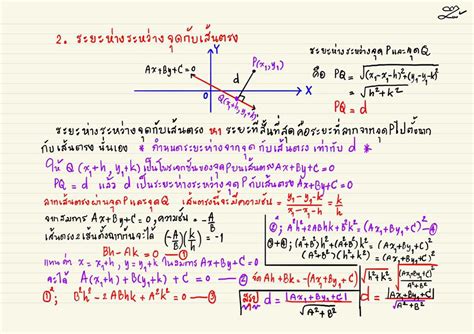 2. ระยะห่างระหว่างจุดกับเส้นตรง
Ax+By+C=0
Y
P(x₁,y₁)
d
X
O
Q(x₁+h, y₁+k)
ระยะห่างระหว่างจุด P และจุด Q
คือ PQ = √((x₁-x₁-h)²+(y₁-y₁-k)²)
= √(h²+k²)
PQ = d
ระยะห่างระหว่างจุดกับเส้นตรง หา ระยะที่สั้นที่สุดคือระยะที่ลากจากจุด P ไปตั้งฉาก
กับเส้นตรง นั่นเอง * กำหนดระยะห่างจากจุดกับเส้นตรง เท่ากับ d *
ให้ Q(x₁+h, y₁+k) เป็นโปรเจกชันของจุด P บนเส้นตรง Ax+By+C=0
PQ = d แล้ว d เป็นระยะห่างระหว่างจุด P กับเส้นตรง Ax+By+C=0
ลากเส้นตรงผ่านจุด P และจุด Q เส้นตรงนี้จะมีความชัน = (y₁+k-y₁)/(x₁+h-x₁) = k/h
จากสมการ Ax+By+C=0, ความชัน = -A/B
เส้นตรง 2 เส้นตั้งฉากกันจะได้ (-A/B)(k/h) = -1
Bh-Ak = 0 ①
แทนค่า x = x₁+h, y = y₁+k ในสมการ Ax+By+C=0
จะได้ A(x₁+h)+B(y₁+k)+C = 0 ②
①²; B²h²-2ABhk+A²k² = 0 ③
จัด Ah+Bk = -(Ax₁+By₁+C)
②²; A²h²+2ABhk+B²k² = (Ax₁+By₁+C)² ④
③+④; (A²+B²)h²+(A²+B²)k² = (Ax₁+By₁+C)²
(A²+B²)(h²+k²) = (Ax₁+By₁+C)²
√(h²+k²) = √((Ax₁+By₁+C)²/(A²+B²))
d = |Ax₁+By₁+C|/√(A²+B²)
สรุป d = |Ax₁+By₁+C|/√(A²+B²)